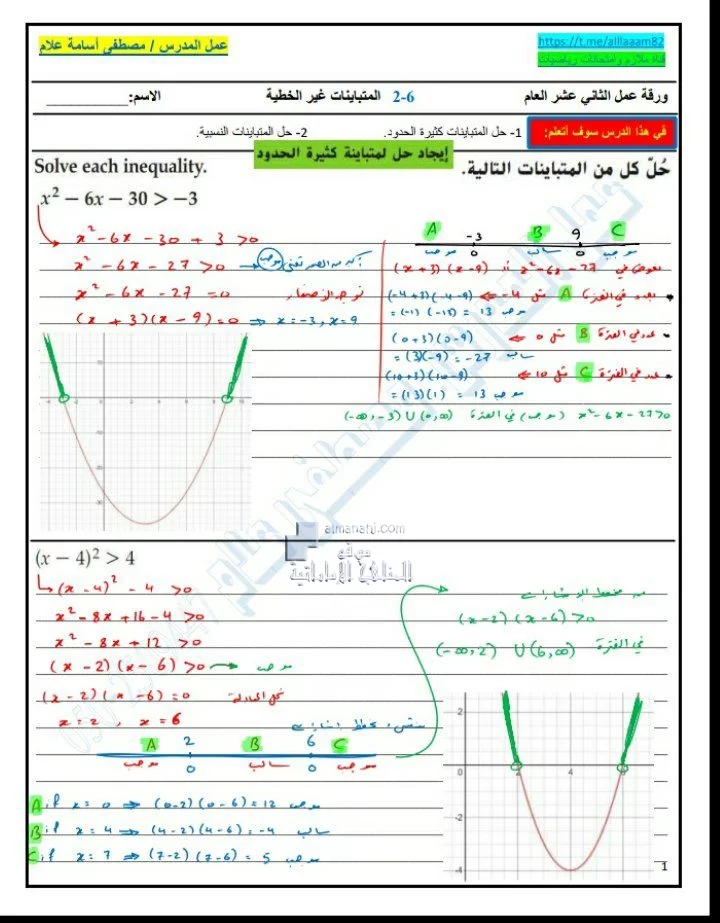 عمل المدرس / مصطفي أسامة علام
https://t.me/alllaaam82
قناة ملازم وامتحانات رياضيات
ورقة عمل الثاني عشر العام
2-6 المتباينات غير الخطية
الاسم:____________
في هذا الدرس سوف أتعلم:
1- حل المتباينات كثيرة الحدود.
2- حل المتباينات النسبية.
إيجاد حل لمتباينة كثيرة الحدود
Solve each inequality.
حُلّ كل من المتباينات التالية.
x² − 6x − 30 > −3
x² - 6x - 30 + 3 > 0
x² - 6x - 27 > 0
x² - 6x - 27 = 0
(x + 3)(x - 9) = 0 ⇒ x = -3, x = 9
A -3 B 9 C
موجب 0 سالب 0 موجب
(x+3)(x-9) x² - 6x - 27
A مثل -4 ⇐ (-4+3)(-4-9)
= (-1)(-13) = 13 موجب
B مثل 0 ⇐ (0+3)(0-9)
= (3)(-9) = -27 سالب
C مثل 10 ⇐ (10+3)(10-9)
= (13)(1) = 13 موجب
x² - 6x - 27 > 0 (موجب) في الفترة
almanahj.com
موقع
المناهج الإماراتية
(x − 4)² > 4
(x - 4)² - 4 > 0
x² - 8x + 16 - 4 > 0
x² - 8x + 12 > 0
(x - 2)(x - 6) > 0 → موجب
(x - 2)(x - 6) = 0 نحل المعادلة
x = 2 , x = 6
A 2 B 6 C
موجب 0 سالب 0 موجب
A if x = 0 ⇒ (0-2)(0-6) = 12 موجب
B if x = 4 ⇒ (4-2)(4-6) = -4 سالب
C if x = 7 ⇒ (7-2)(7-6) = 5 موجب
من مخطط الإشارات
(x-2)(x-6) > 0
في الفترة (-∞, 2) ∪ (6, ∞)
2
0
2
4
6
-2
-4
1